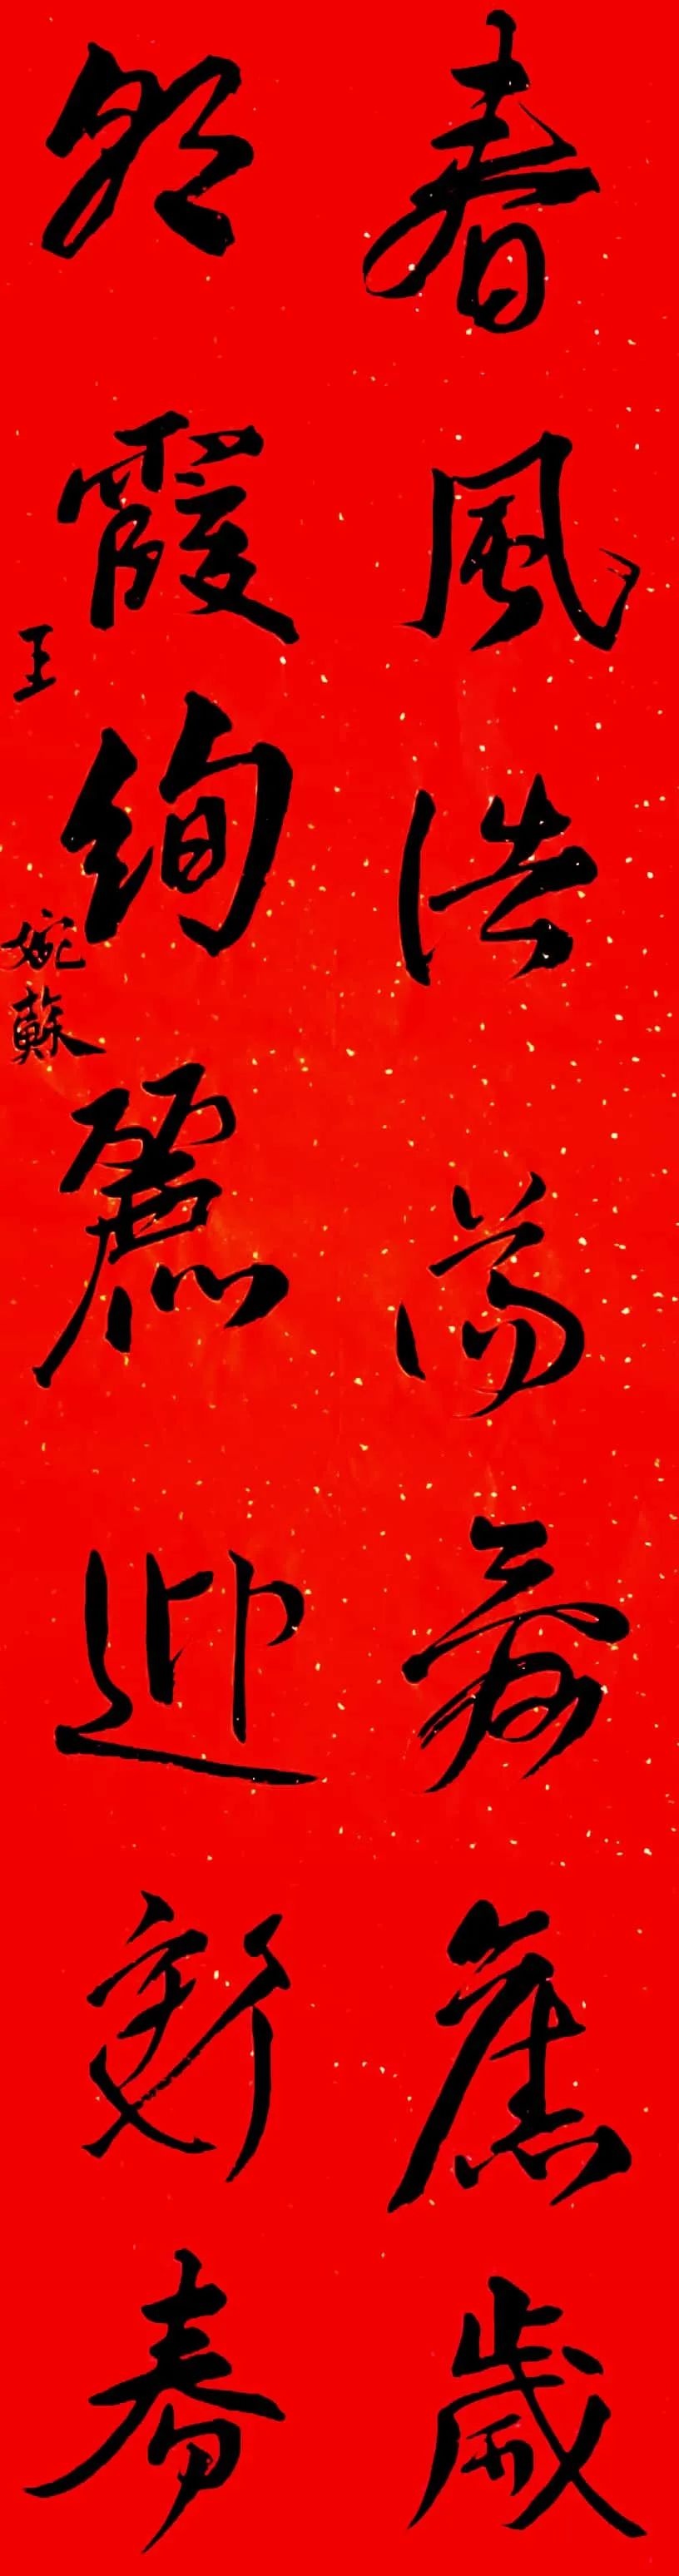 春風浩蕩辭舊歲
朝霞絢麗迎新春
王婉蘇